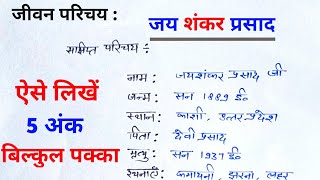 जीवन परिचय :
जय शंकर प्रसाद
संक्षिप्त परिचय :-
ऐसे लिखें
5 अंक
बिल्कुल पक्का
नाम : जयशंकर प्रसाद जी
जन्म : सन 1889 ई०
स्थान : काशी, उत्तर प्रदेश
पिता : देवी प्रसाद
मृत्यु : सन 1937 ई०
रचनाएँ : कमायनी, झरना, लहर